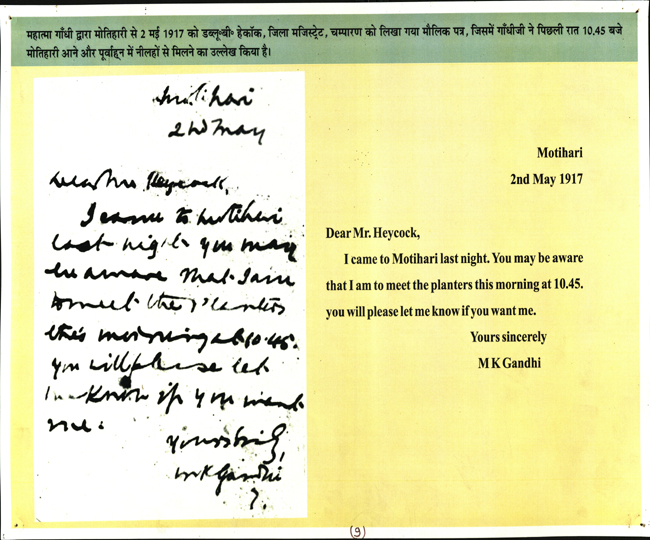 महात्मा गाँधी द्वारा मोतिहारी से 2 मई 1917 को डब्लू॰बी॰ हेकॉक, जिला मजिस्ट्रेट, चम्पारण को लिखा गया मौलिक पत्र, जिसमें गाँधीजी ने पिछली रात 10.45 बजे
मोतिहारी आने और पूर्वाह्न में नीलहों से मिलने का उल्लेख किया है।
Motihari
2nd May
Dear Mr. Heycock,
I came to Motihari
last night you may
be aware that I am
to meet the planters
this morning at 10.45.
you will please let
me know if you want
me.
yours
MKGandhi
Motihari
2nd May 1917
Dear Mr. Heycock,
I came to Motihari last night. You may be aware
that I am to meet the planters this morning at 10.45.
you will please let me know if you want me.
Yours sincerely
M K Gandhi
(9)